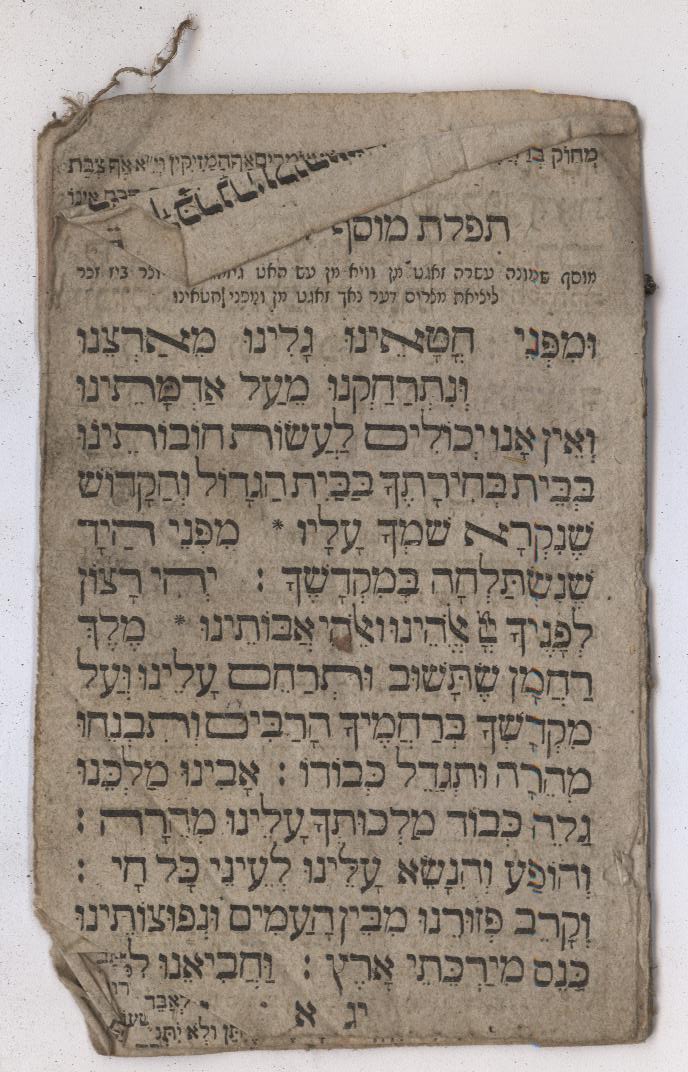 מחוק
תפלת מוסף
מוסף שמונה עשרה זאגט מן וויא מן עש האט
ליציאת מצרים דער נאך זאגט מן ומפני חטאינו
וּמִפְּנֵי חֲטָאֵינוּ גָלִינוּ מֵאַרְצֵנוּ
וְנִתְרַחַקְנוּ מֵעַל אַדְמָתֵינוּ
וְאֵין אָנוּ יְכוֹלִים לַעֲשׂוֹת חוֹבוֹתֵינוּ
בְּבֵית בְּחִירָתֶךָ בַּבַּיִת הַגָּדוֹל וְהַקָּדוֹשׁ
שֶׁנִּקְרָא שִׁמְךָ עָלָיו * מִפְּנֵי הַיָּד
שֶׁנִּשְׁתַּלְּחָה בְּמִקְדָּשֶׁךָ : יְהִי רָצוֹן
לְפָנֶיךָ יְיָ אֱלֹהֵינוּ וֵאלֹהֵי אֲבוֹתֵינוּ * מֶלֶךְ
רַחֲמָן שֶׁתָּשׁוּב וּתְרַחֵם עָלֵינוּ וְעַל
מִקְדָּשְׁךָ בְּרַחֲמֶיךָ הָרַבִּים וְתִבְנֵהוּ
מְהֵרָה וּתְגַדֵּל כְּבוֹדוֹ : אָבִינוּ מַלְכֵּנוּ
גַּלֵּה כְּבוֹד מַלְכוּתְךָ עָלֵינוּ מְהֵרָה :
וְהוֹפַע וְהִנָּשֵׂא עָלֵינוּ לְעֵינֵי כָּל חָי :
וְקָרֵב פְּזוּרֵנוּ מִבֵּין הָעַמִּים וּנְפוּצוֹתֵינוּ
כַּנֵּס מִיַּרְכְּתֵי אָרֶץ : וַהֲבִיאֵנוּ
יג א
לְאָבֵד
וְלֹא